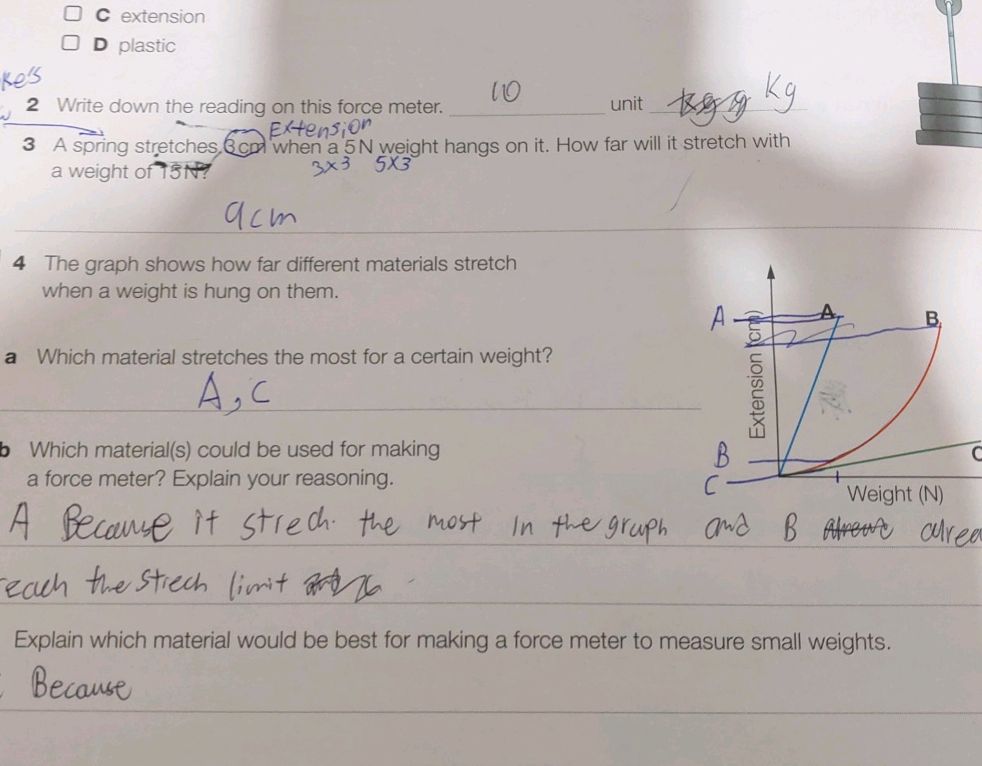 C extension
D plastic
2 Write down the reading on this force meter. 110 unit Kg
Extension
3 A spring stretches 3 cm when a 5 N weight hangs on it. How far will it stretch with
a weight of 15N? 3x3 5x3
9cm
4 The graph shows how far different materials stretch
when a weight is hung on them.
A A B
Extension (cm)
a Which material stretches the most for a certain weight?
A, C
b Which material(s) could be used for making
a force meter? Explain your reasoning.
B
C
C
Weight (N)
A Because it strech. the most In the graph and B alrea
each the strech limit
Explain which material would be best for making a force meter to measure small weights.
Because